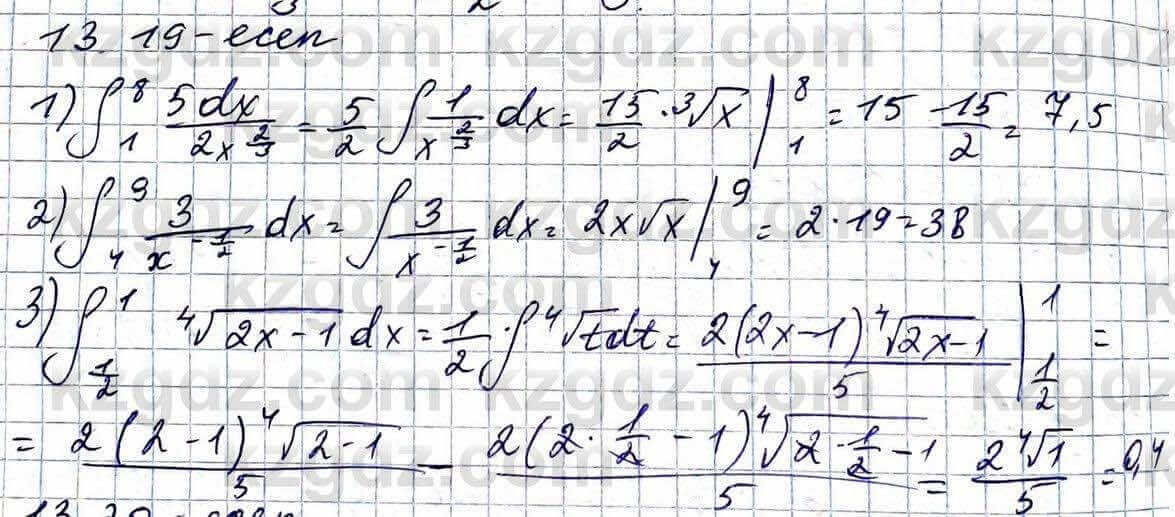 13. 19-есеп
1) ∫₁⁸ 5dx / 2x^(2/3) = 5/2 ∫ 1/x^(2/3) dx = 15/2 · ³√x |₁⁸ = 15 - 15/2 = 7,5
2) ∫₄⁹ 3/x^(-1/2) dx = ∫ 3/x^(-1/2) dx = 2x√x |₄⁹ = 2·19=38
3) ∫_(1/2)^1 ⁴√(2x-1) dx = 1/2 · ∫ ⁴√t dt = 2(2x-1) ⁴√(2x-1) / 5 |_(1/2)^1 =
= 2(2-1) ⁴√(2-1) / 5 - 2(2·1/2 - 1) ⁴√(2·1/2 - 1) / 5 = 2⁴√1 / 5 = 0,4
kzgdz.com